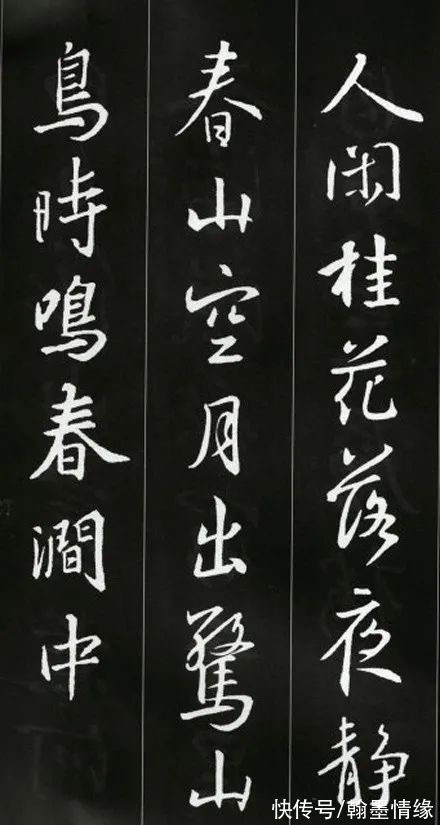 人闲桂花落夜静
春山空月出驚山
鳥時鳴春澗中
快传号/翰墨情缘